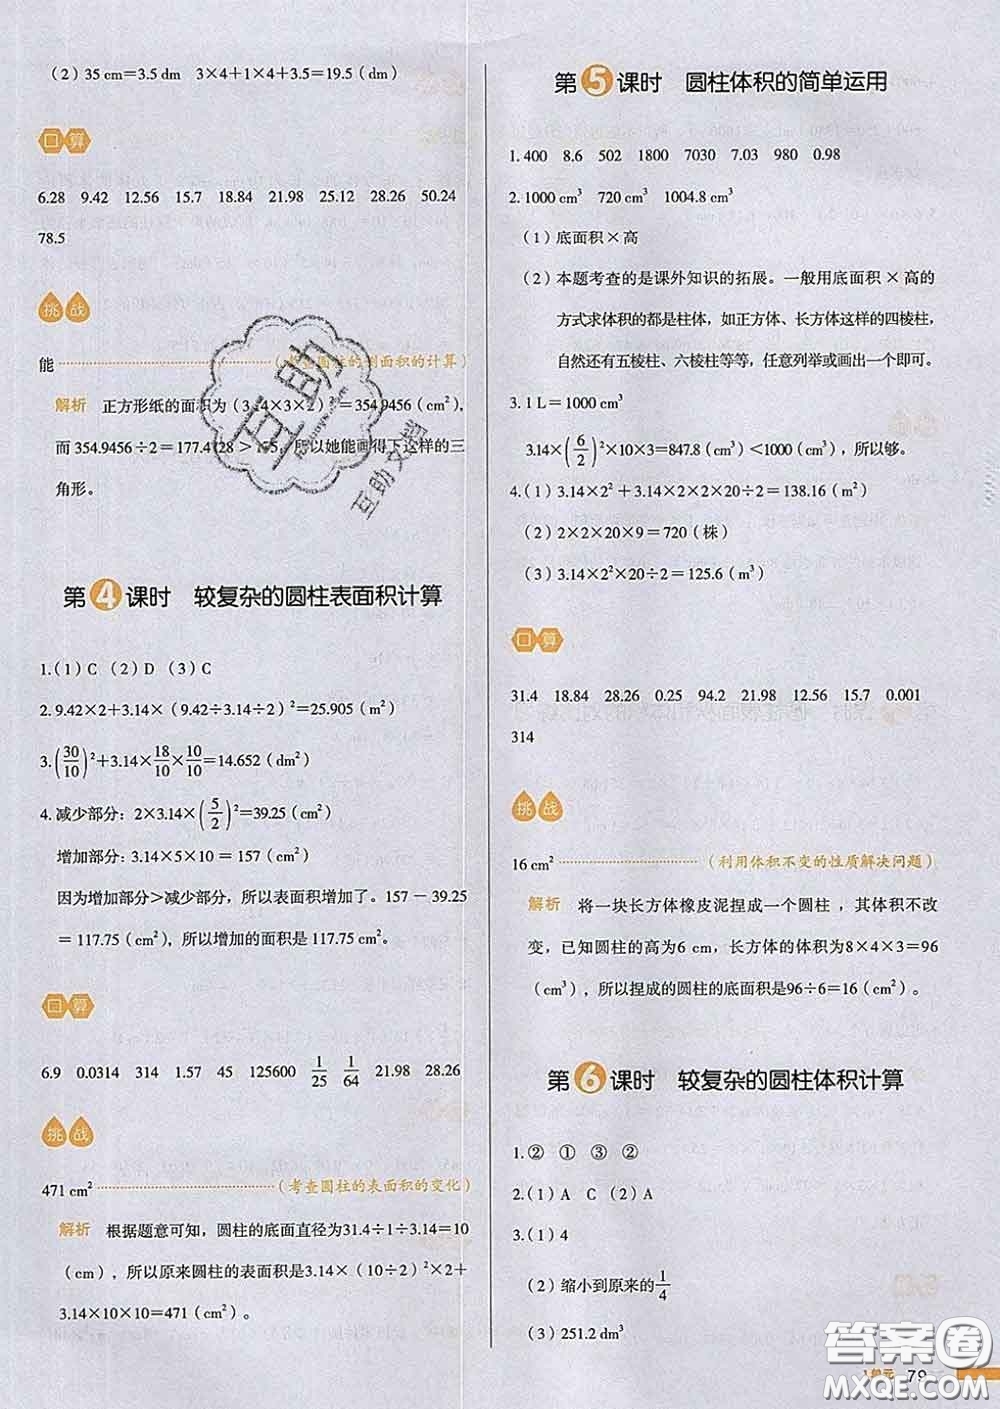 （2）35 cm=3.5 dm　3×4+1×4+3.5=19.5（dm）
口算
6.28　9.42　12.56　15.7　18.84　21.98　25.12　28.26　50.24
78.5
挑战
能（考查圆柱的侧面积的计算）
解析　正方形纸的面积为（3.14×3×2）²=354.9456（cm²），
而 354.9456÷2=177.4728＞175，所以她能画得下这样的三
角形。
第4课时　较复杂的圆柱表面积计算
1.（1）C （2）D （3）C
2. 9.42×2+3.14×（9.42÷3.14÷2）²=25.905（m²）
3. (30/10)²+3.14×18/10×10/10=14.652（dm²）
4. 减少部分：2×3.14×(5/2)²=39.25（cm²）
增加部分：3.14×5×10 = 157（cm²）
因为增加部分>减少部分，所以表面积增加。157 − 39.25
= 117.75（cm²），所以增加的面积是 117.75 cm²。
口算
6.9　0.0314　314　1.57　45　125600　1/25　1/64　21.98　28.26
挑战
471 cm²（考查圆柱的表面积的变化）
解析　根据题意可知，圆柱的底面直径为31.4÷1÷3.14=10
（cm），所以原来圆柱的表面积是3.14×（10÷2）²×2+
3.14×10×10=471（cm²）。
第5课时　圆柱体积的简单运用
1. 400　8.6　502　1800　7030　7.03　980　0.98
2. 1000 cm³　720 cm³　1004.8 cm³
（1）底面积×高
（2）本题考查的是课外知识的拓展。一般用底面积×高的
方式求体积的都是柱体，如正方体、长方体这样的四棱柱，
自然还有五棱柱、六棱柱等等，任意列举或画出一个即可。
3. 1 L=1000 cm³
3.14×(6/2)²×10×3=847.8（cm³）<1000（cm³），所以够。
4.（1）3.14×2²+3.14×2×2×20÷2=138.16（m²）
（2）2×2×20×9=720（株）
（3）3.14×2²×20÷2=125.6（m³）
口算
31.4　18.84　28.26　0.25　94.2　21.98　12.56　15.7　0.001
314
挑战
16 cm²（利用体积不变的性质解决问题）
解析　将一块长方体橡皮泥捏成一个圆柱，其体积不改
变，已知圆柱的高为6 cm，长方体的体积为8×4×3=96
（cm³），所以捏成的圆柱的底面积是96÷6=16（cm²）。
第6课时　较复杂的圆柱体积计算
1. ②　①　③　②
2.（1）A　C （2）A
3.（1）4
（2）缩小到原来的1/4
（3）251.2 dm³
1单元　79
互助
互助文档
答案圈
MXQE.COM